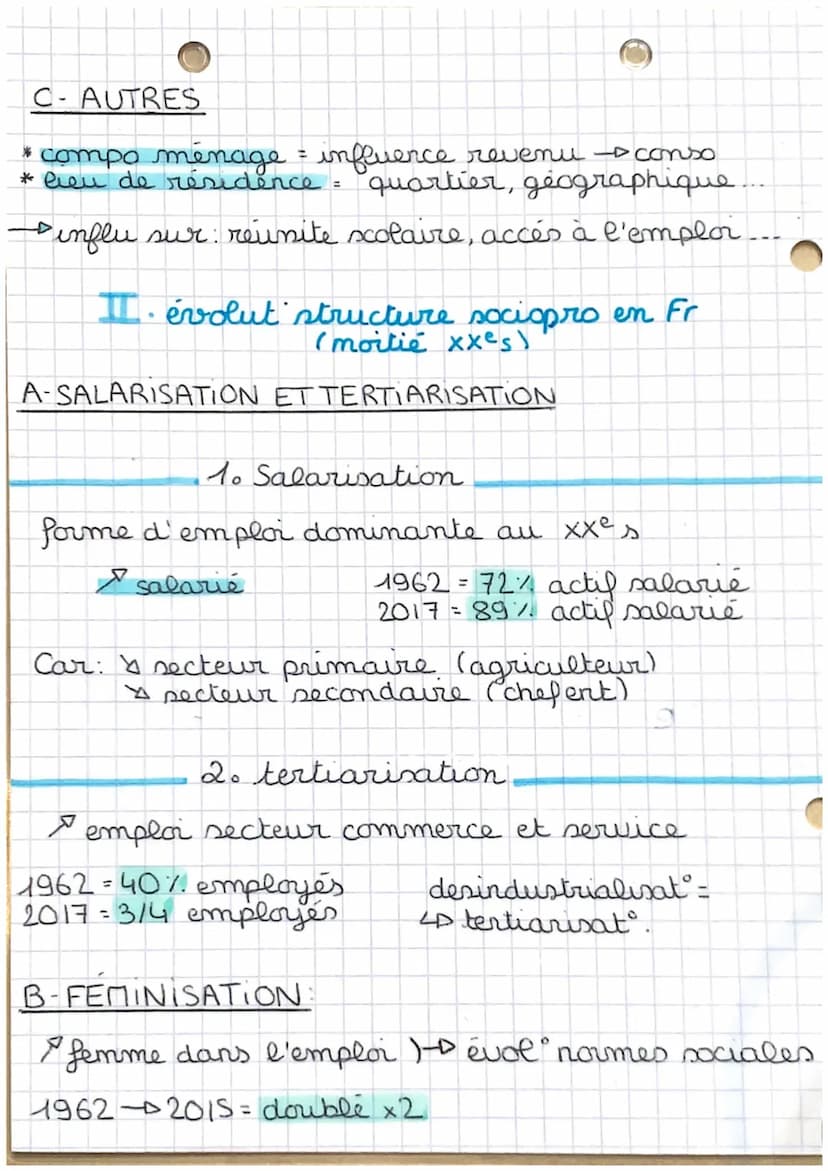 C- AUTRES
* compo ménage = influence revenu → conso
* lieu de résidence = quartier, géographique...
→ influ sur: réunite scolaire, accés à l'emploi...
II. évolut° structure sociopro en Fr
(moitié XXe s)
A- SALARISATION ET TERTIARISATION
1. Salarisation
forme d'emploi dominante au XXe s
↗ salarié
1962 = 72% actif salarié
2017 = 89% actif salarié
Car: ↘ secteur primaire (agriculteur)
↘ secteur secondaire (chef ent)
2. tertiarisation
↗ emploi secteur commerce et service
1962 = 40% employés
2017 = 3/4 employés
desindustrialisat° =
↳ tertiarisat°.
B- FÉMINISATION:
↗ femme dans l'emploi )→ évol° normes sociales
1962 → 2015 = doublé x2